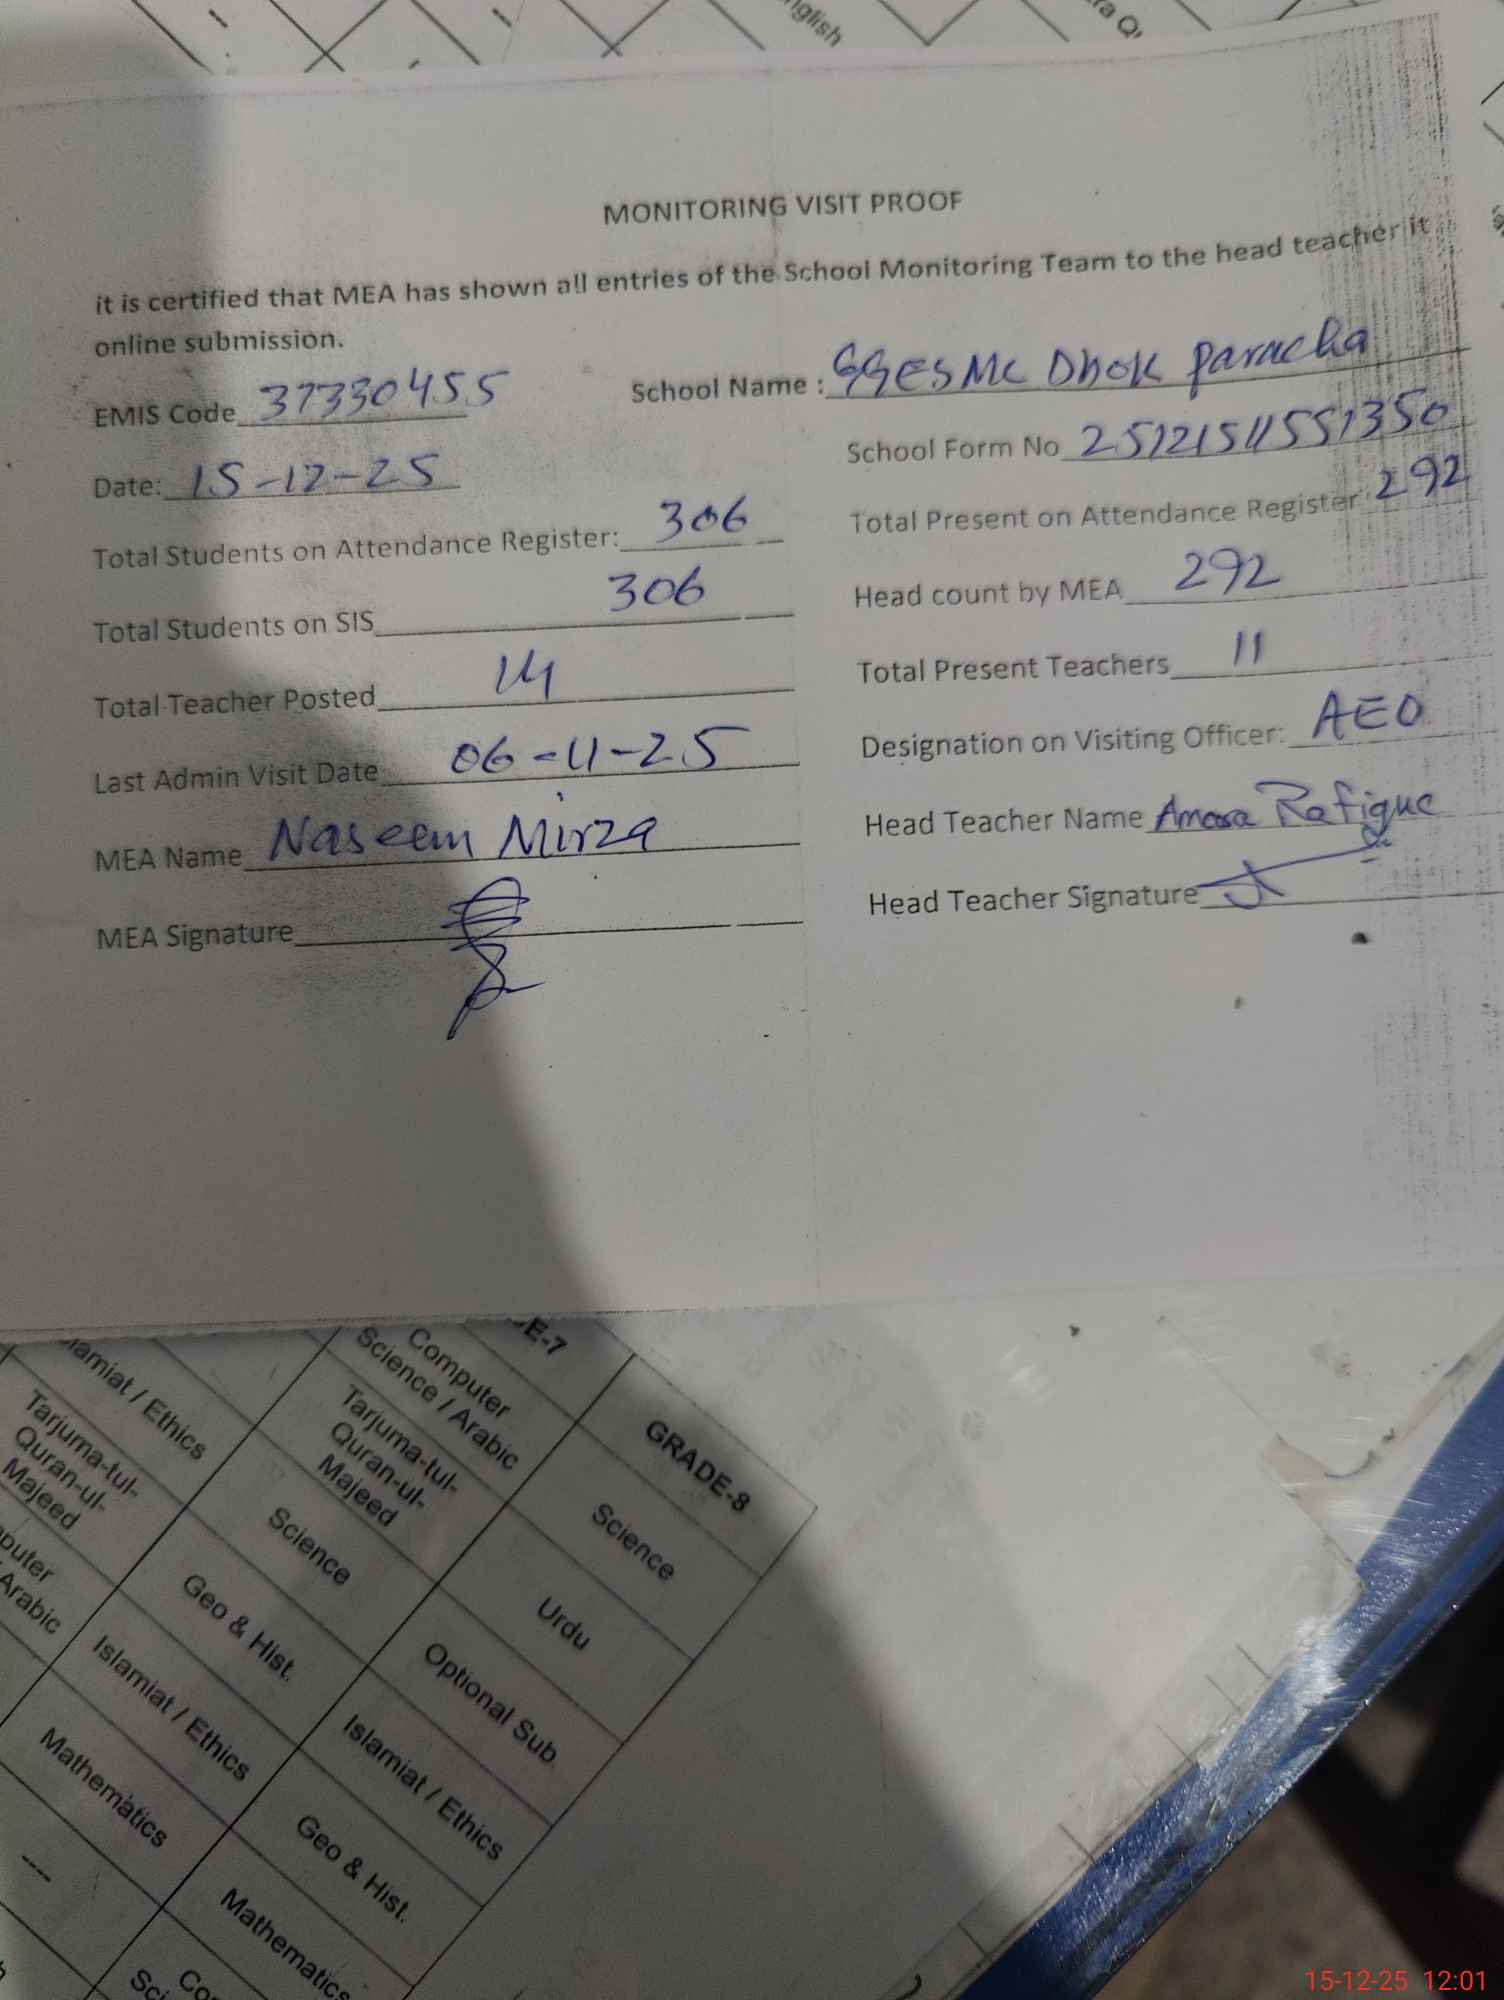 nglish
ra Q
MONITORING VISIT PROOF
it is certified that MEA has shown all entries of the School Monitoring Team to the head teacher it
online submission.
EMIS Code 37330455 School Name : GGES MC Dhok Paracha
Date: 15-12-25 School Form No 25121511551350
Total Students on Attendance Register: 306 Total Present on Attendance Register: 292
Total Students on SIS 306 Head count by MEA 292
Total Teacher Posted 14 Total Present Teachers 11
Last Admin Visit Date 06-11-25 Designation on Visiting Officer: AEO
MEA Name Naseem Mirza Head Teacher Name Rafique
MEA Signature Head Teacher Signature
E-7
GRADE-8
Computer
Science / Arabic
Science
lamiat / Ethics
Tarjuma-tul-
Quran-ul-
Majeed
Urdu
Tarjuma-tul-
Quran-ul-
Majeed
Science
Optional Sub.
puter
Arabic
Geo & Hist.
Islamiat / Ethics
Islamiat / Ethics
Geo & Hist.
Mathematics
Mathematics
----
Co
Sci
15-12-25 12:01